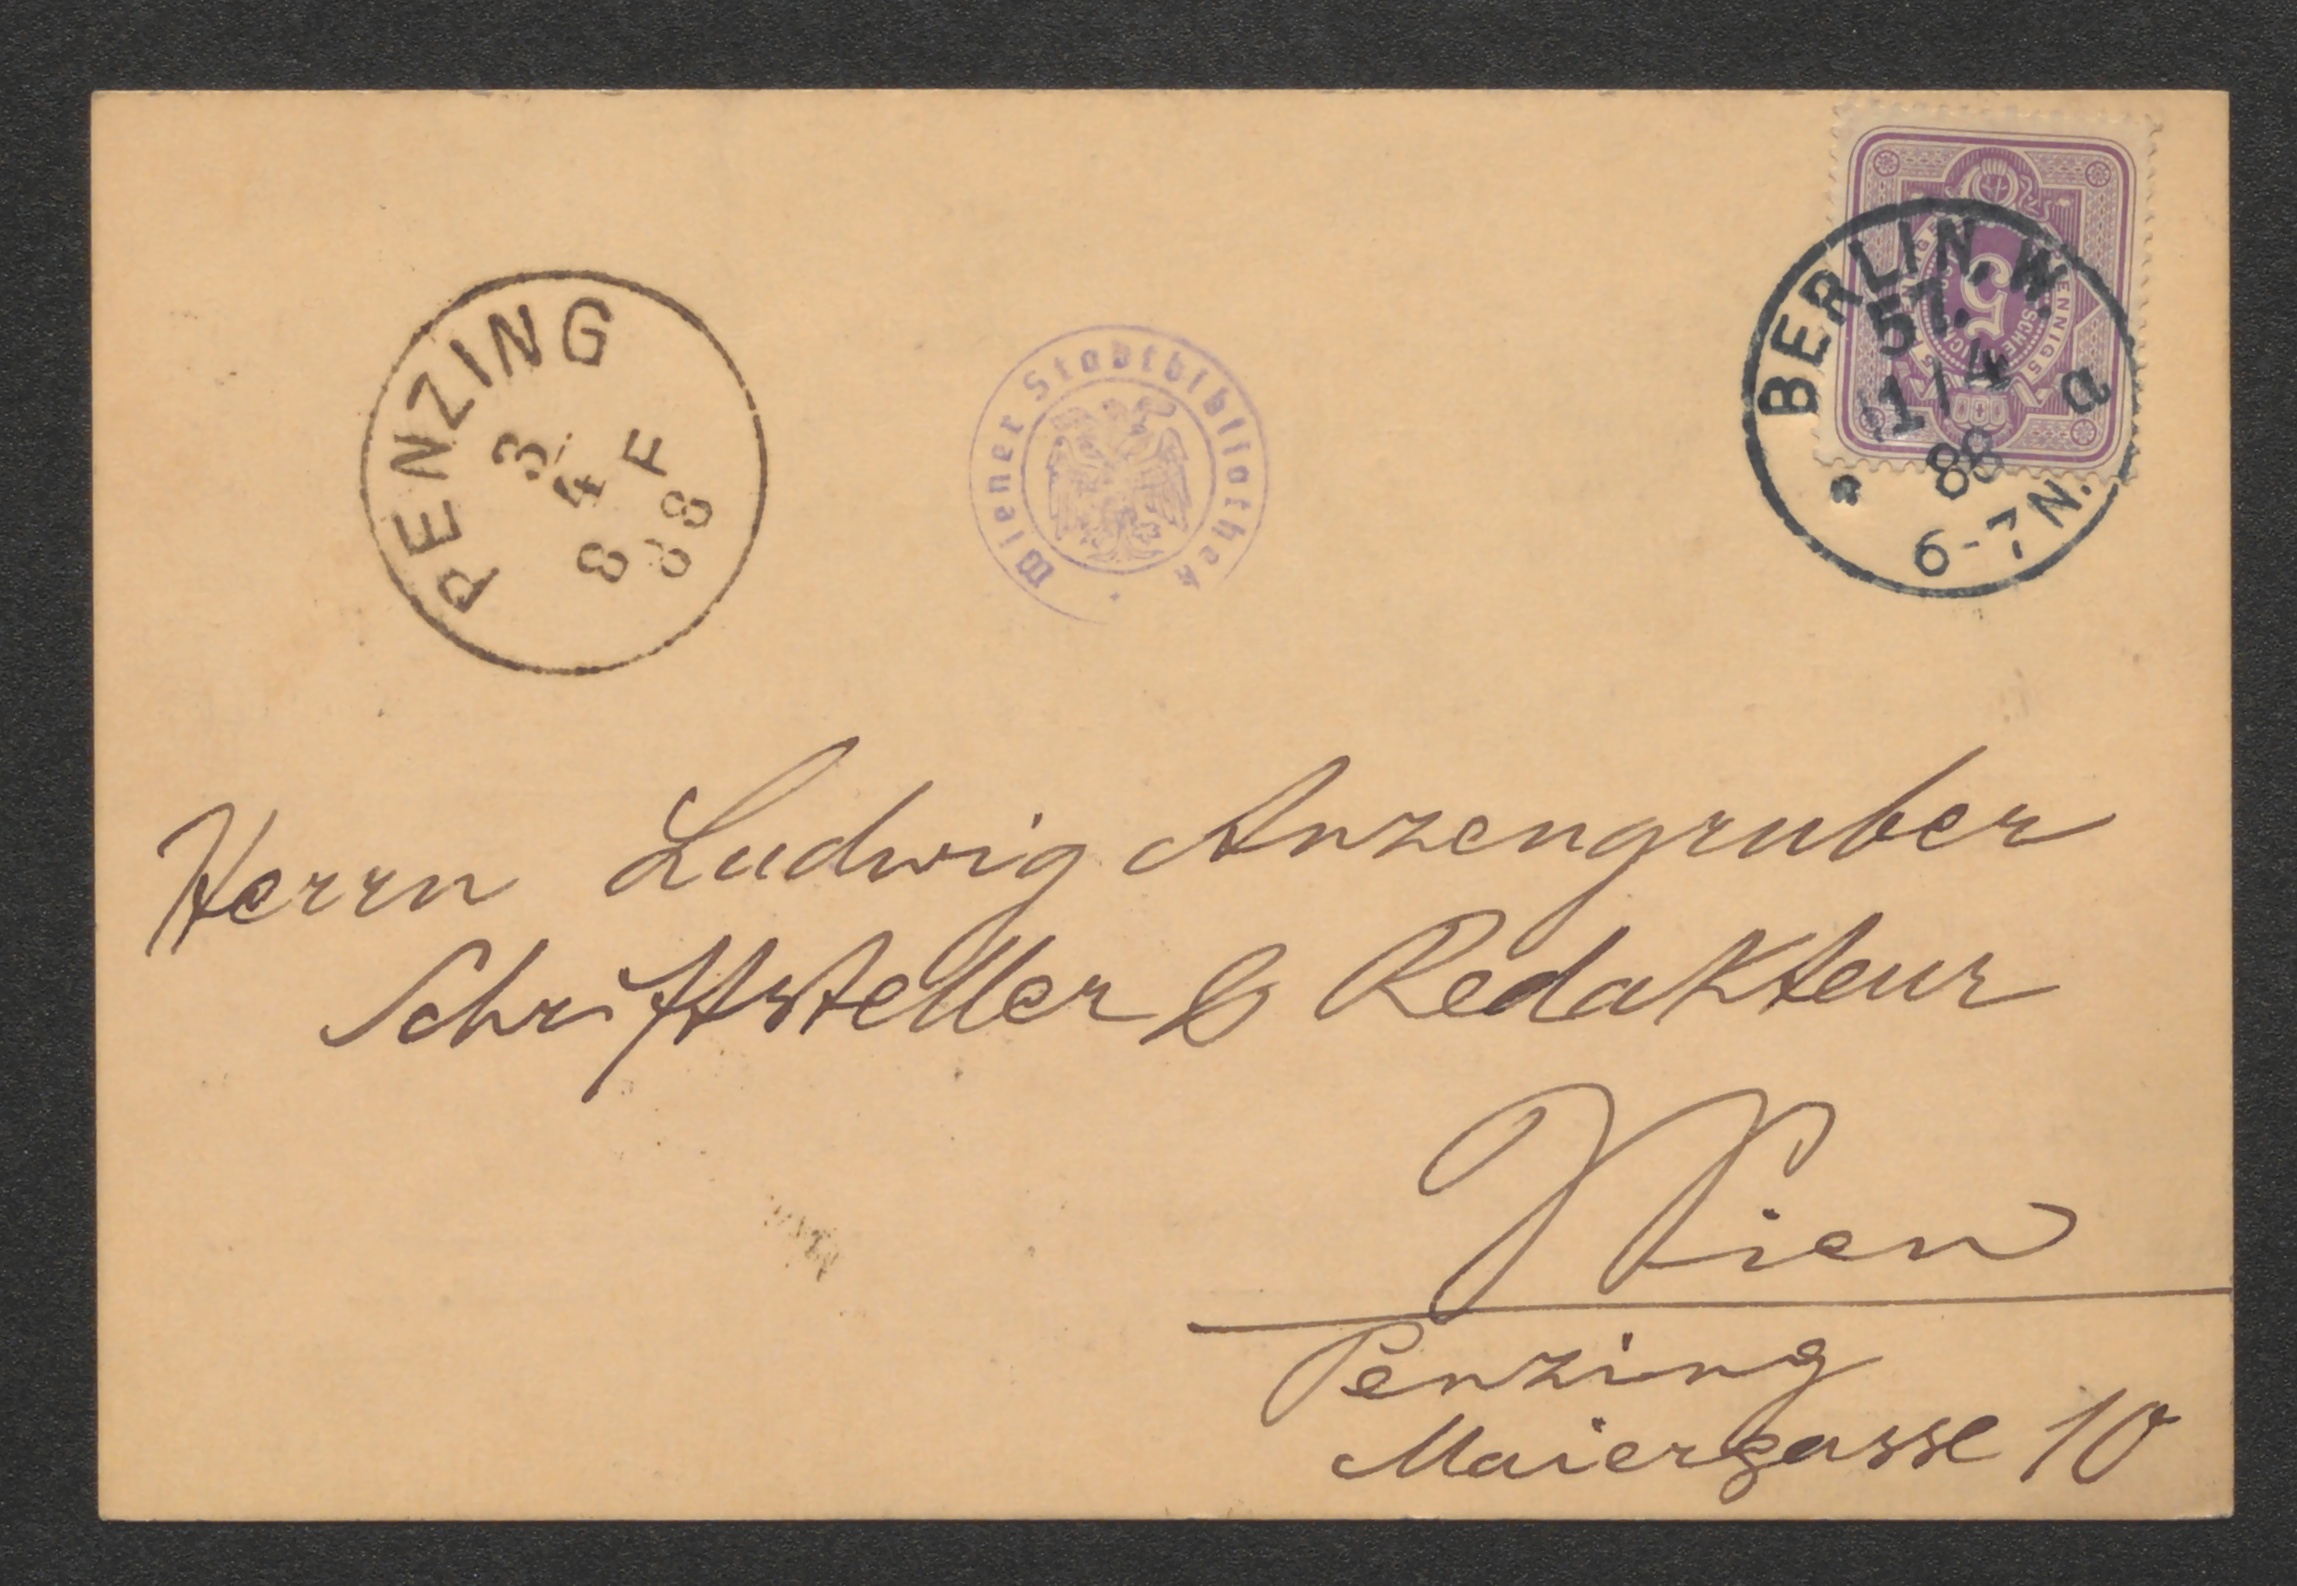 BERLIN. W.
57.
1/4
88
a
6-7N.
5
PENZING
3.
4
88
8 F
Wiener Stadtbibliothek
Herrn Ludwig Anzengruber
Schriftsteller & Redakteur
Wien
Penzing
Maiergasse 10